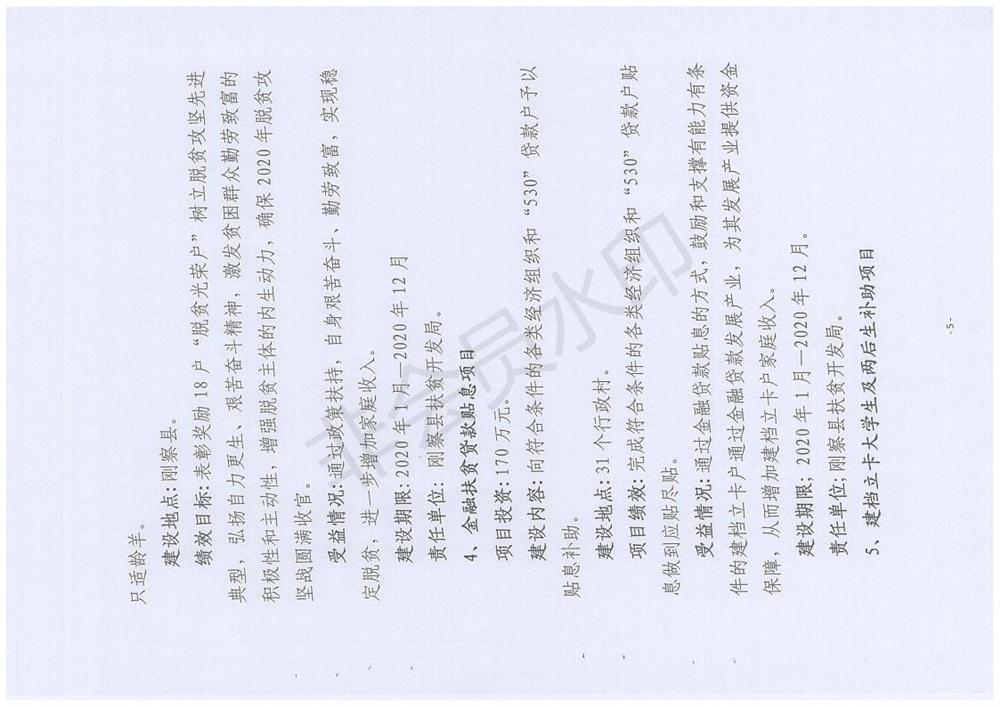 只适龄羊。
建设地点:刚察县。
绩效目标:表彰奖励18户“脱贫光荣户”树立脱贫攻坚先进
典型，弘扬自力更生、艰苦奋斗精神，激发贫困群众勤劳致富的
积极性和主动性，增强脱贫主体的内生动力，确保2020年脱贫攻
坚战圆满收官。
受益情况:通过政策扶持，自身艰苦奋斗、勤劳致富，实现稳
定脱贫，进一步增加家庭收入。
建设期限:2020年1月—2020年12月
责任单位: 刚察县扶贫开发局。
4、金融扶贫贷款贴息项目
项目投资:170万元。
建设内容:向符合条件的各类经济组织和“530”贷款户予以
贴息补助。
建设地点:31个行政村。
项目绩效:完成符合条件的各类经济组织和“530”贷款户贴
息做到应贴尽贴。
受益情况:通过金融贷款贴息的方式，鼓励和支撑有能力有条
件的建档立卡户通过金融贷款发展产业，为其发展产业提供资金
保障，从而增加建档立卡户家庭收入。
建设期限;2020年1月—2020年12月。
责任单位;刚察县扶贫开发局。
5、建档立卡大学生及两后生补助项目
-5-
非会员水印